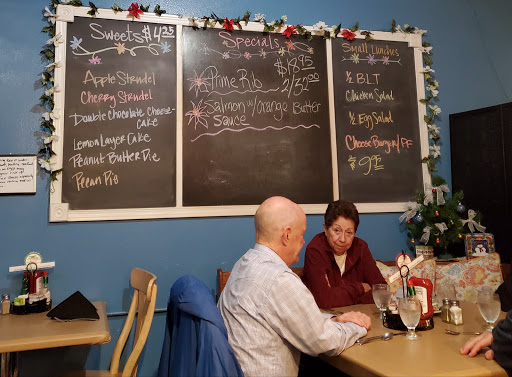 Sweets $4.25
Apple Strudel
Cherry Strudel
Double Chocolate Cheese-
cake
Lemon Layer Cake
Peanut Butter Pie
Pecan Pie
Specials
Prime Rib $18.95
2/32.00
Salmon w/ Orange Butter
Sauce
Small Lunches
1/2 BLT
Chicken Salad
1/2 Egg Salad
Cheese Burger/FF
$9.95